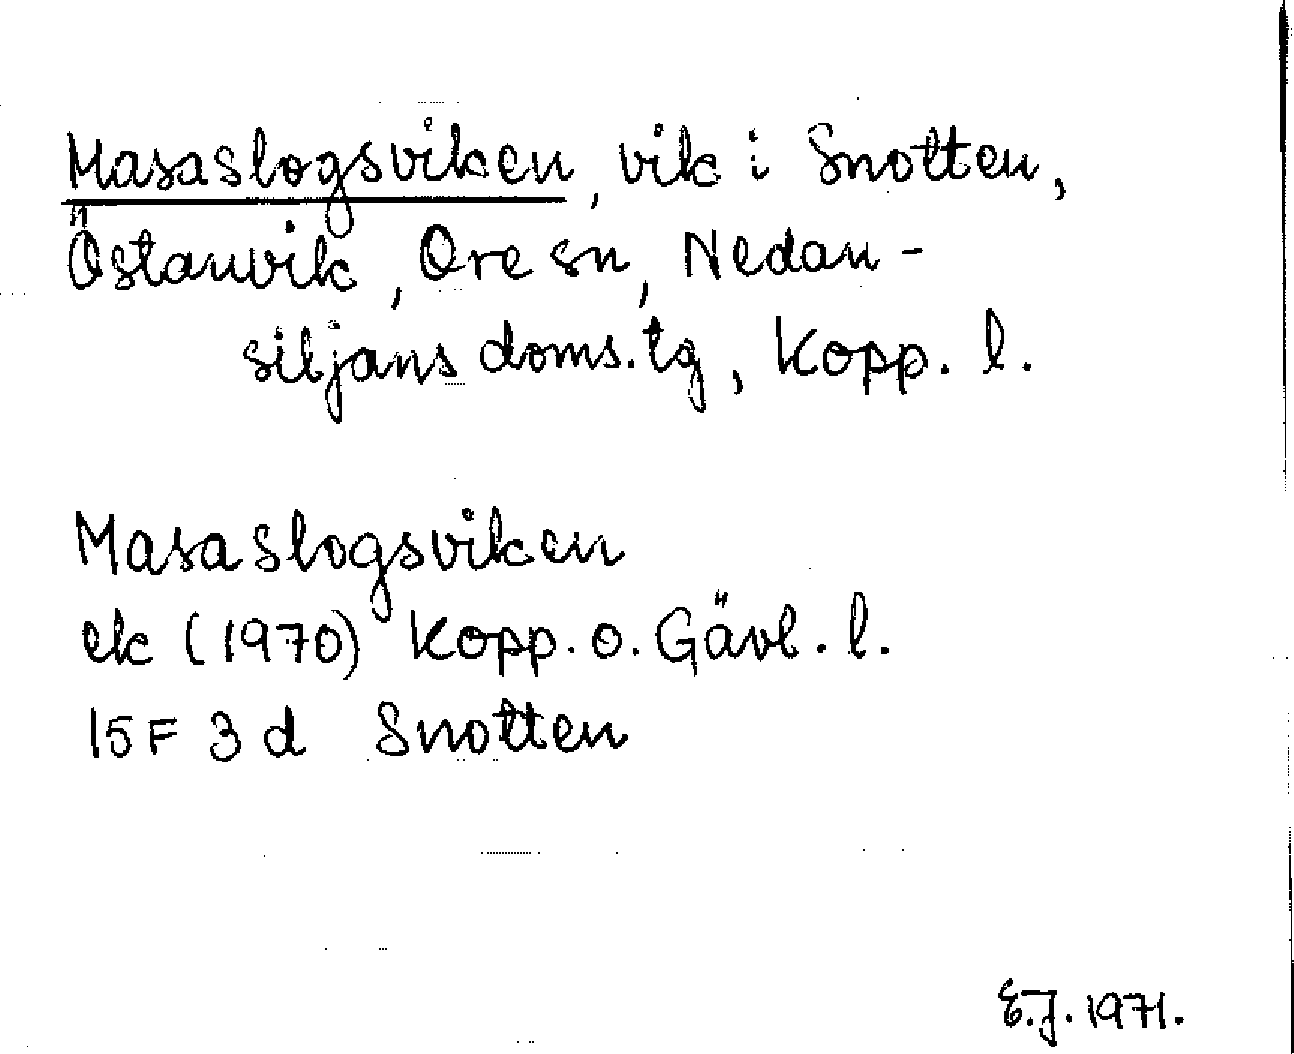 Masaslogsviken, vik i Snotten,
Östanvik, Ore sn, Nedan-
siljans doms.tg, Kopp. l.
Masaslogsviken
ek (1970) Kopp. o. Gävl. l.
15F 3d Snotten
E.J. 1971.